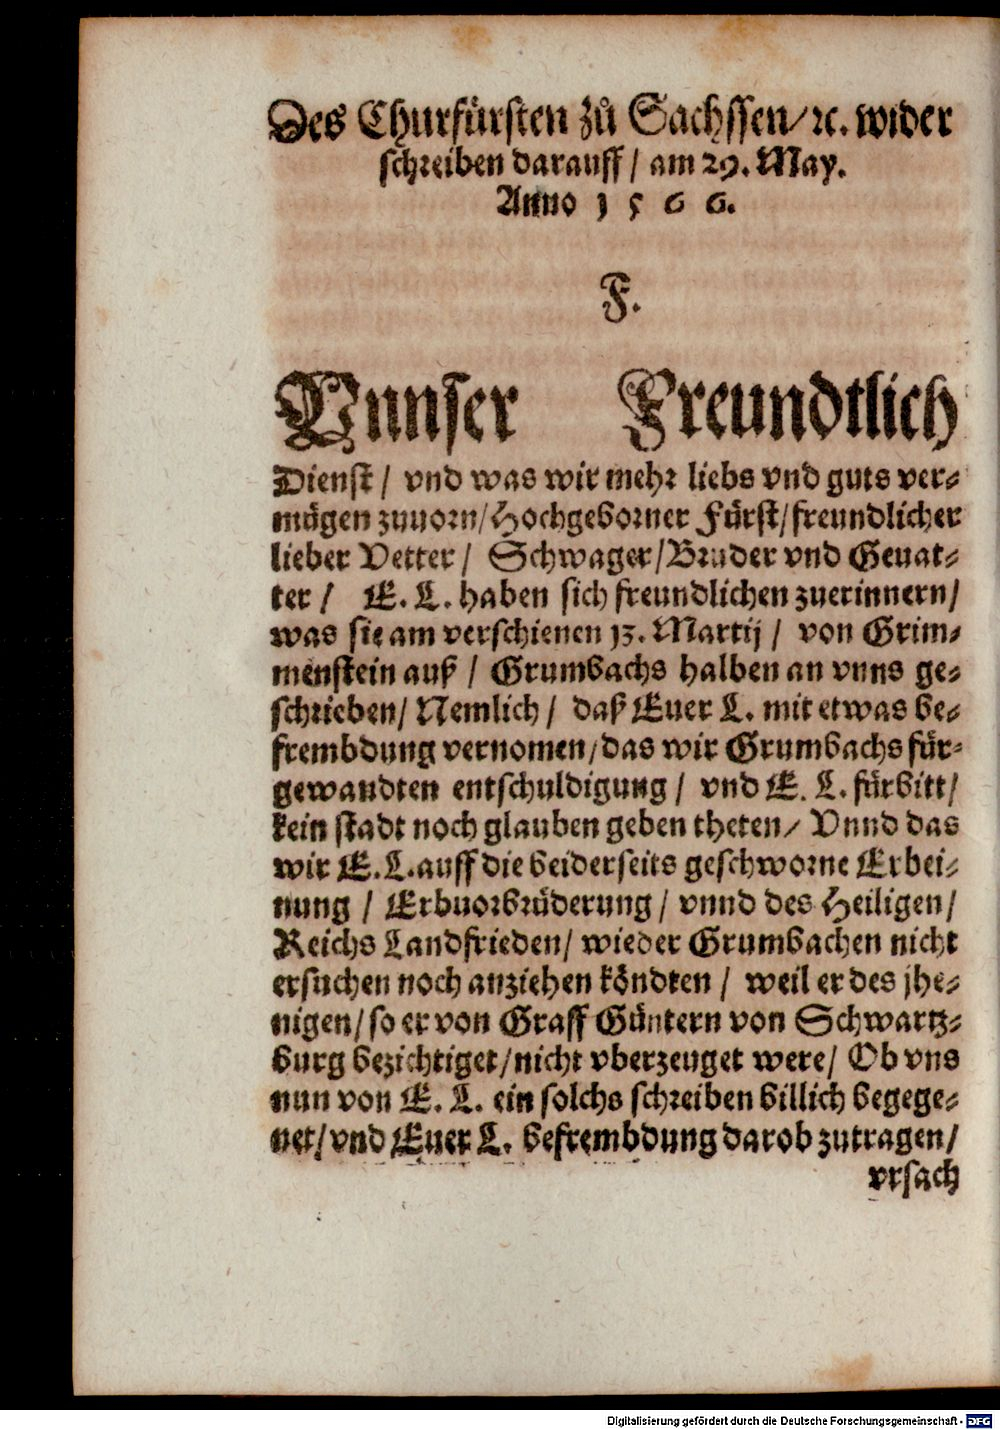 Des Churfürsten zů Sachssen/ ꝛc. wider
schreiben darauff / am 29. May.
Anno 1 5 6 6.
F.
Vnnser Freundtlich
Dienst / vnd was wir mehr liebs vnd guts ver-
mögen zuuorn/ Hochgeborner Fürst/ freundlicher
lieber Vetter / Schwager/ Bruder vnd Geuat-
ter / E. L. haben sich freundlichen zuerinnern/
was sie am verschienen 13. Martij / von Grim-
menstein auß / Grumbachs halben an vnns ge-
schrieben/ Nemlich / daß Euer L. mit etwas be-
frembdung vernomen/ das wir Grumbachs für-
gewandten entschuldigung / vnd E. L. fürbitt/
kein stadt noch glauben geben theten/ Vnnd das
wir E. L. auff die beiderseits geschworne Erbei-
nung / Erbuorbrüderung / vnnd des Heiligen/
Reichs Landfrieden/ wieder Grumbachen nicht
ersuchen noch anziehen köndten / weil er des jhe-
nigen/ so er von Graff Güntern von Schwartz-
burg bezichtiget/ nicht vberzeuget were/ Ob vns
nun von E. L. ein solchs schreiben billich begege-
net/ vnd Euer L. befrembdung darob zutragen/
vrsach
Digitalisierung gefördert durch die Deutsche Forschungsgemeinschaft - DFG